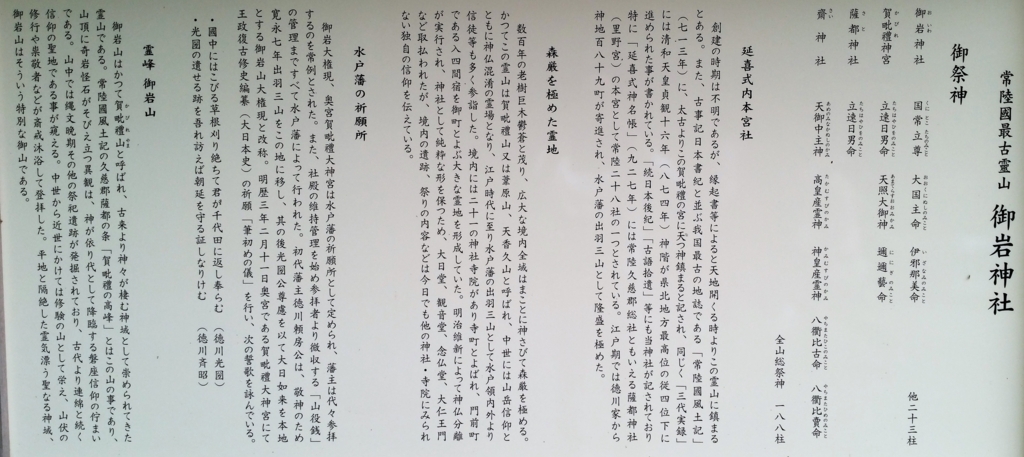 常陸國最古霊山 御岩神社
御祭神
御岩神社 国常立尊 大国主命 伊邪那美命 他二十三柱
賀毗禮神宮 立速日男命 天照大御神 邇邇藝命
薩都神社 立速日男命
齋神社 天御中主神 高皇産霊神 神皇産霊神 八衢比古命 八衢比賣命
全山総祭神 一八八柱
延喜式内本宮社
創建の時期は不明であるが、縁起書等によると天地開くる時よりこの霊山に鎮まる
とある。また、古事記日本書紀と並ぶ我国最古の地誌である「常陸國風土記」
(七一三年)に、大古よりこの賀毗禮の宮に天つ神鎮まると記され、同じく「三代実録」
には清和天皇貞観十六年(八七四年)神階が県北地方最高位の従四位下に
進められた事が書かれている。「続日本後紀」「古語拾遺」等にも当神社が記されており
特に「延喜式神名帳」(九二七年)には常陸久慈郡総社ともいえる薩都神社
(里野宮)の本宮として常陸二十八社の一つとされている。江戸期では徳川家から
神地百八十九町が寄進され、水戸藩の出羽三山として隆盛を極めた。
森厳を極めた霊地
数百年の老樹巨木鬱蒼と茂り、広大な境内全域はまことに神さびて森厳を極める。
かつてこの霊山は賀毗禮山又は葦原山、天香久山と呼ばれ、中世には山岳信仰と
ともに神仏混淆の霊場となり、江戸時代に至り水戸藩の出羽三山として水戸領内外より
信徒等も多く参詣した。境内には二十一の神社寺院があり寺町とよばれ、門前町
である入四間宿を御町とよぶ大きな霊地を形成していた。明治維新によって神仏分離
が実行され、神社として純粋な形を保つため、大日堂、観音堂、念仏堂、大仁王門
など取払われたが、境内の遺跡、祭りの内容などは今日でも他の神社・寺院にみられ
ない独自の信仰を伝えている。
水戸藩の祈願所
御岩大権現、奥宮賀毗禮大神宮は水戸藩の祈願所として定められ、藩主は代々参拝
するのを常例とされた。また、社殿の維持管理を始め参拝者より徴収する「山役銭」
の管理まですべて水戸藩によって行われた。初代藩主徳川頼房公は、敬神のため
寛永七年出羽三山をこの地に移し、其の後光圀公尊慮を以て大日如来を本地
とする御岩山大権現と改称。明歴三年二月十一日奥宮である賀毗禮大神宮にて
王政復古修史編纂(大日本史)の祈願「筆初めの儀」を行い、次の誓歌を詠んでいる。
・國中にはこびる草根刈り絶ちて君が千代田に返し奉らむ (徳川光圀)
・光圀の遺せる跡を吾れ訪えば朝廷を守る証しなりけむ (徳川斉昭)
霊峰 御岩山
御岩山はかつて賀毗禮山と呼ばれ、古来より神々が棲む神域として崇められてきた
霊山である。常陸國風土記の久慈郡薩都の条「賀毗禮の高峰」とはこの山の事であり、
山頂に奇岩怪石がそびえ立つ異観は、神が依り代として降臨する磐座信仰の佇まい
である。山中では縄文晩期その他の祭祀遺跡が発掘されており、古代より連綿と続く
信仰の聖地である事が窺える。中世から近世にかけては修験の山として栄え、山伏の
修行や崇敬者などが斎戒沐浴して登拝した。平地と隔絶した霊気漂う聖なる神域、
御岩山はそういう特別な御山である。